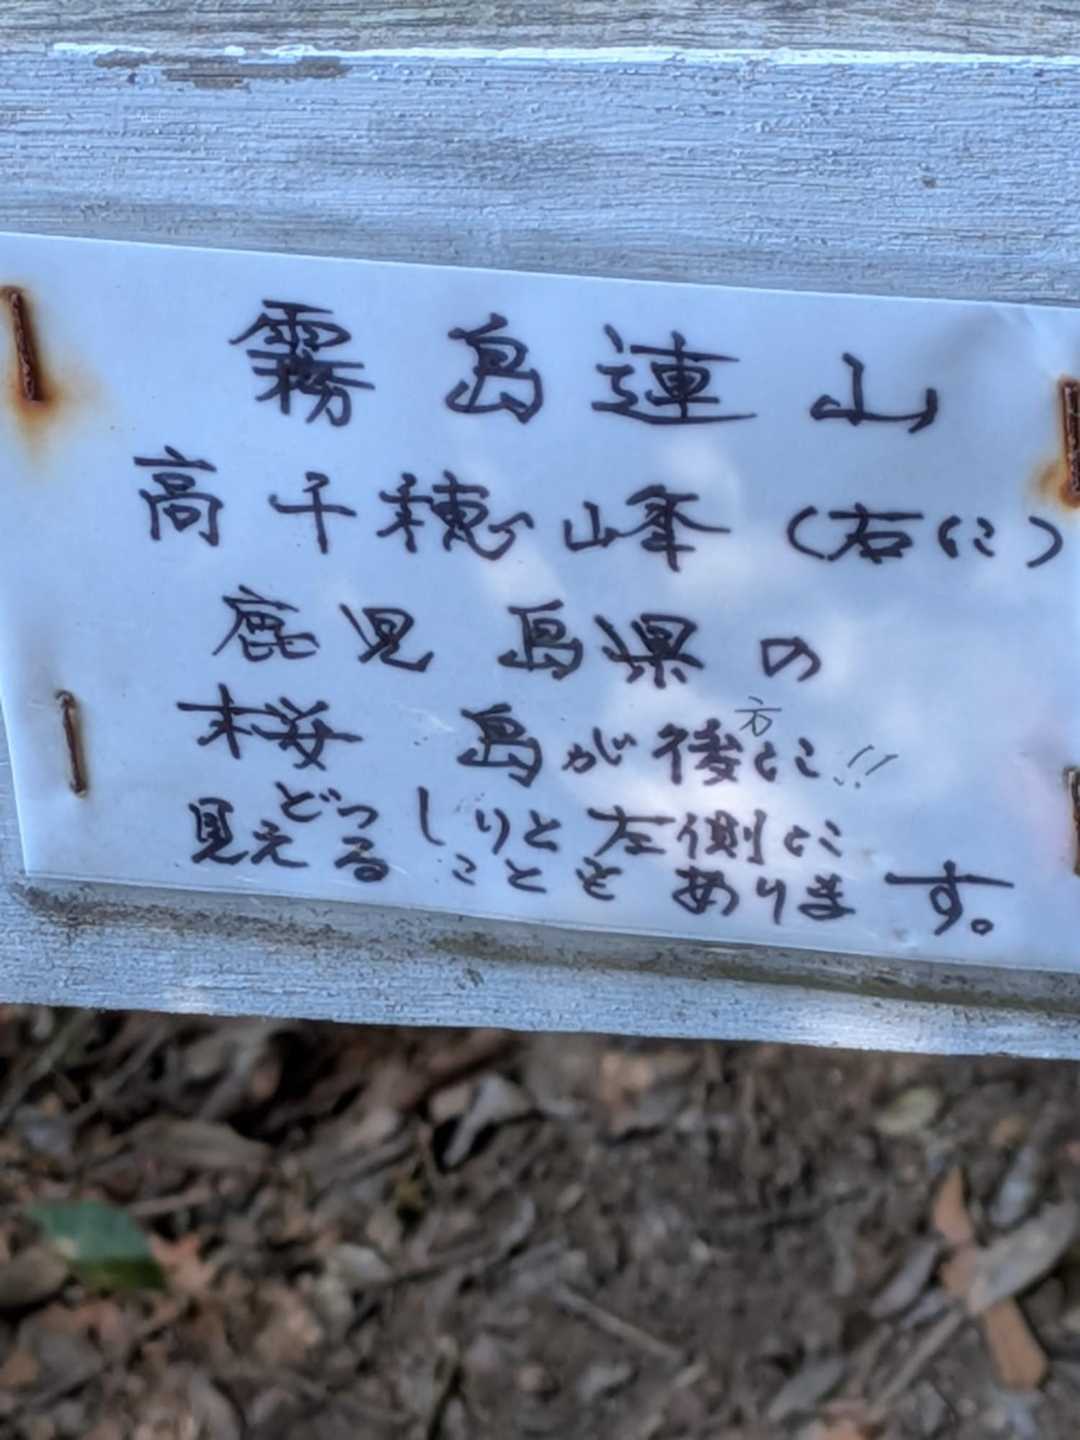 霧島連山
高千穂峰(右に)
鹿児島県の
桜島が後方に!!
どっしりと左側に
見えることもあります。